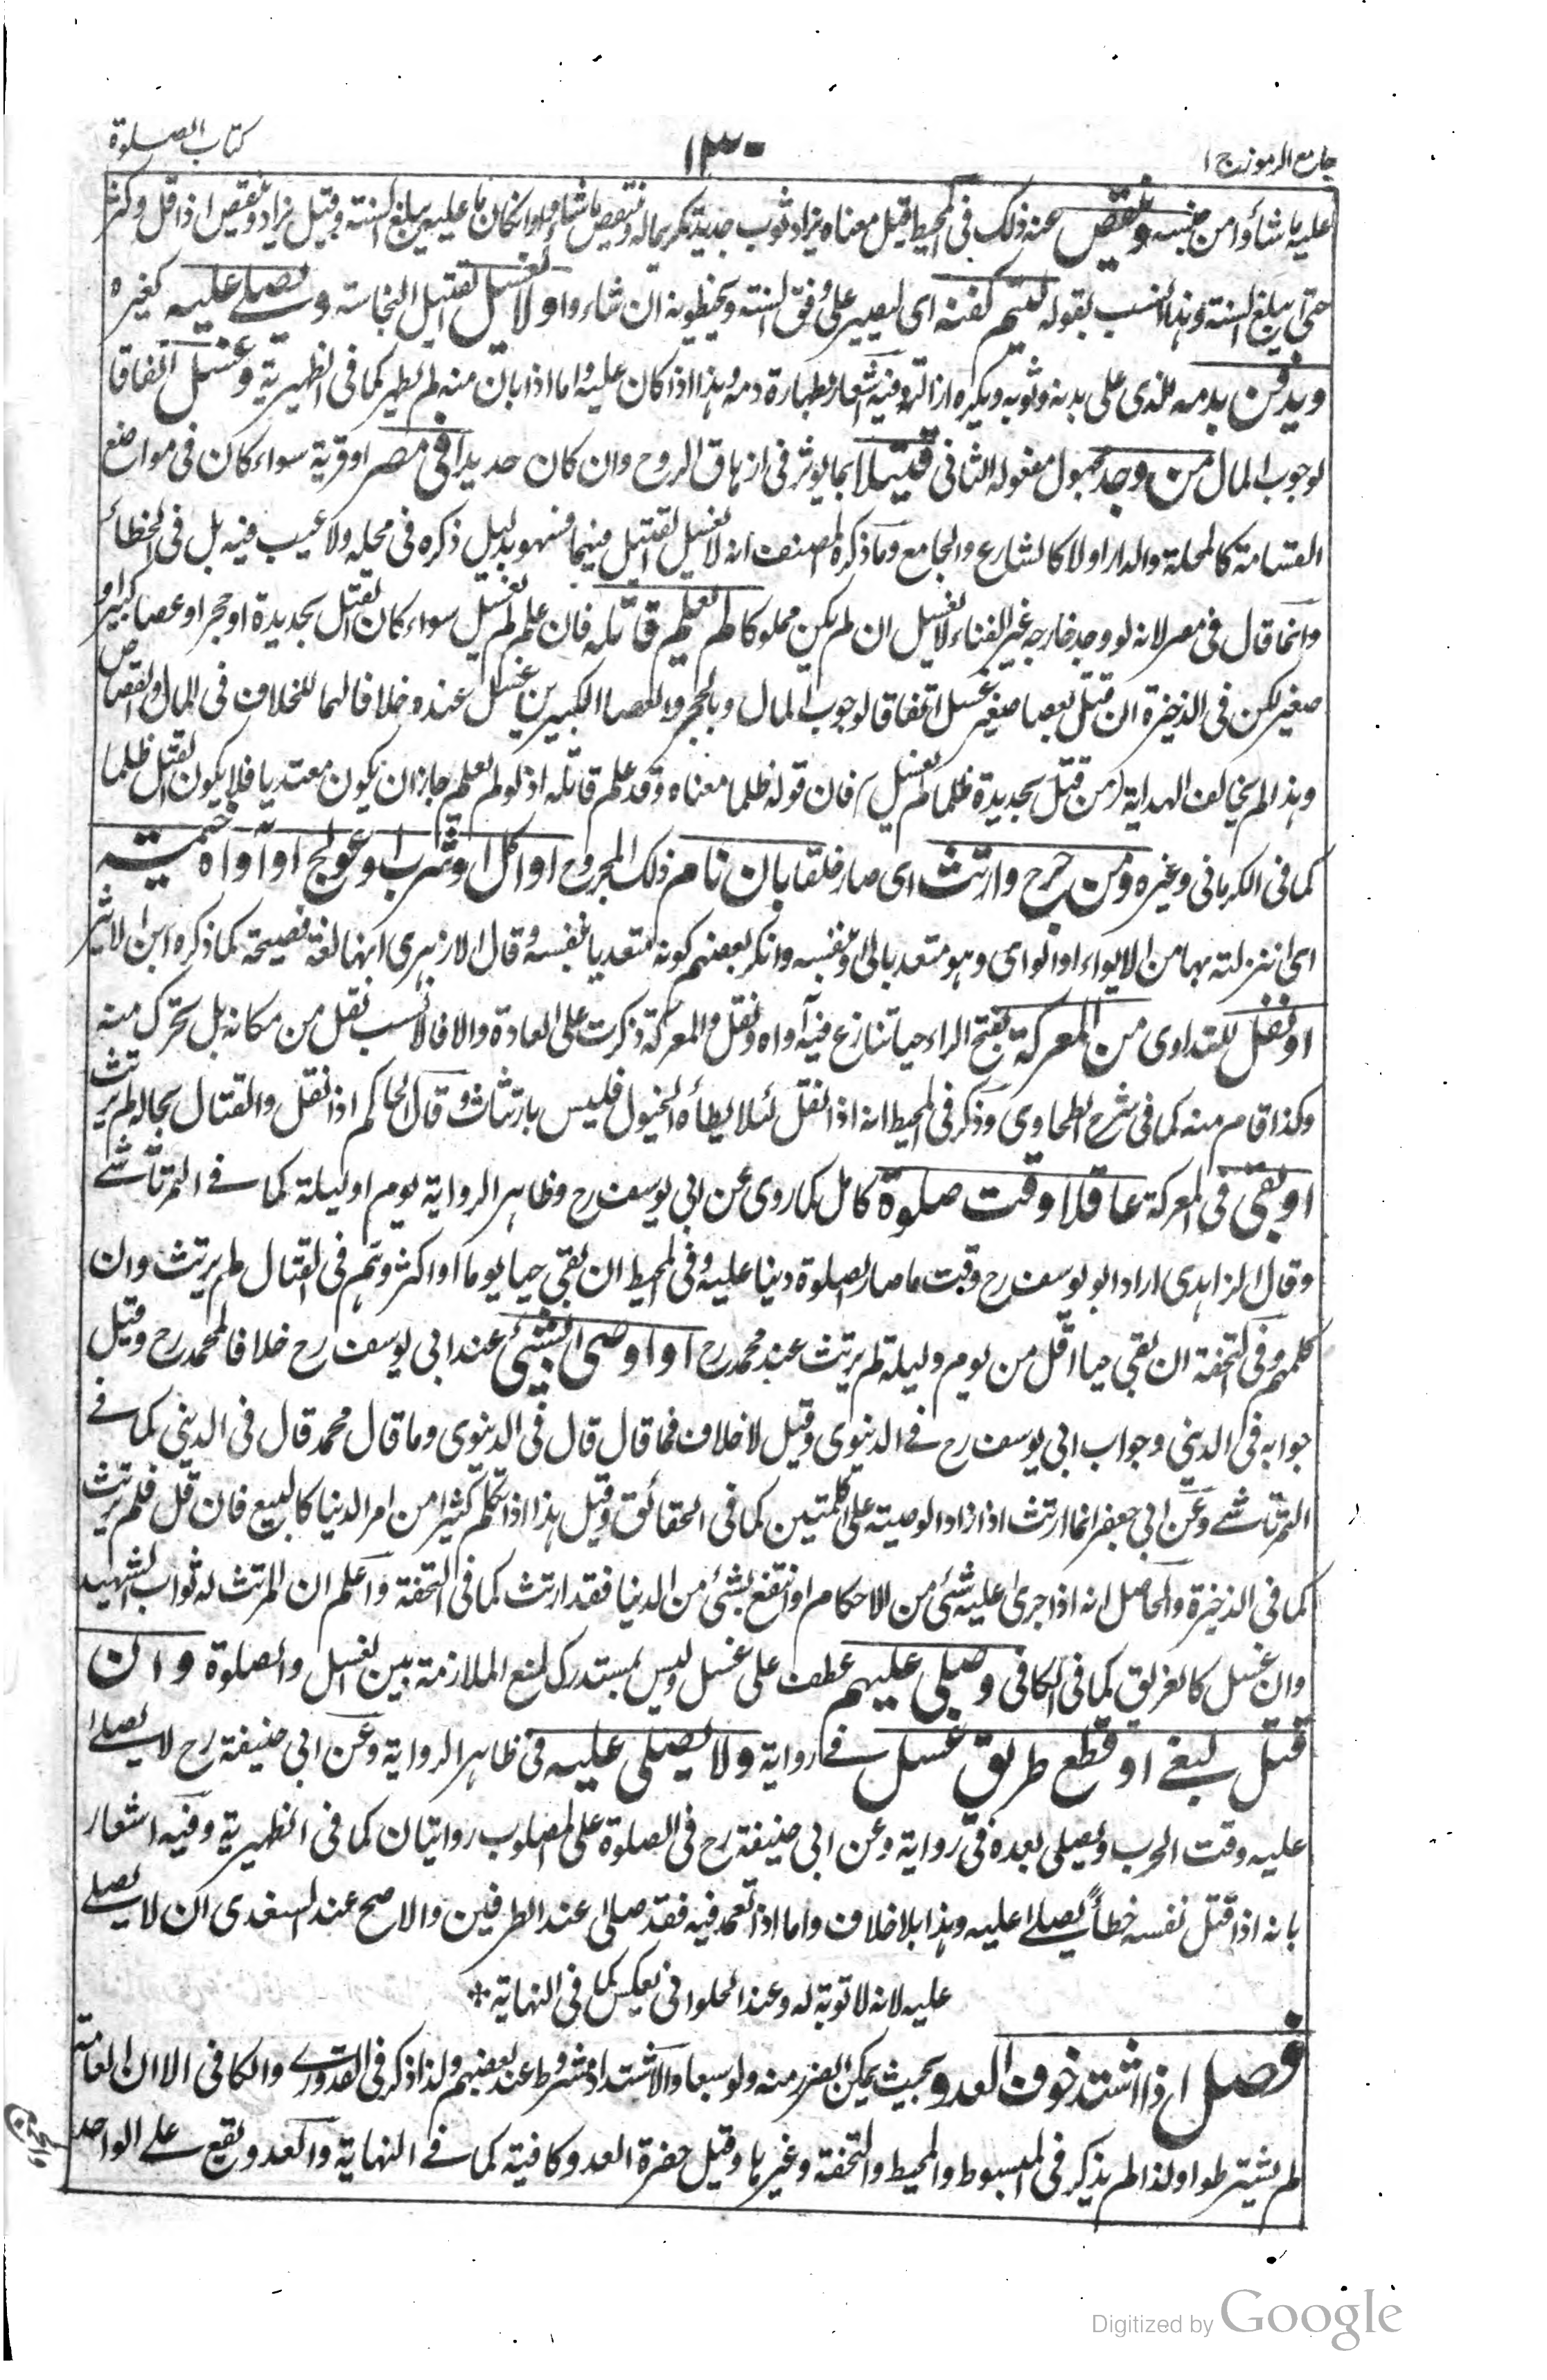 جامع الرموز ج ١
١٣٠
كتاب الصلوة
عليه ما شاؤا من جنسه وينقص عنه ذلك فى المحيط قيل معناه يزاد ثوب جديد تكريما له وينقص ما شاؤا وان كان ما عليه يبلغ السنة وقيل يزاد وينقص اذا قل وكثر
حتى يبلغ السنة وهذا انسب بقوله ليتم كفنه اى ليصير على وفق السنة ويحنطونه ان شاروا ولا يغسل لقتيل النجاسة ويصلے عليه كغيره
ويدفن بدمه الذى على بدنه وثوبه ويكره ازالته وفيه اشعار بطهارة دمه وهذا اذا كان عليه واما اذا بان منه لم يطهر كما فى الظهيرية وغسل اتفاقا
لوجوب المال من وجد مجهول مفعوله الثانى قتيلا بما يوثر فى ازهاق الروح وان كان حديدا فى مصر او قرية سواء كان فى مواضع
القسامة كالمحلة والدار اولا كالشارع والجامع وما ذكره المصنف انه لا يغسل القتيل فيهما فسهو بدليل ذكره فى محله ولا عيب فيه بل فى الخطائر
وانما قال فى مصر لانه لو وجد خارجه غير الفناء لا يغسل ان لم يكن مملوكا لم يعلم قاتله فان علم لم يغسل سواء كان القتل بحديدة او حجر او عصا كبير او
صغير لكن فى الذخيرة ان قتل بعصا صغير غسل اتفاقا لوجوب المال وبالحجر والعصا الكبيرين غسل عنده خلافا لهما للخلاف فى المال والقصاص
وهذا لم يخالف الهداية (من قتل بحديدة ظلما لم يغسل) فان قوله ظلما معناه وقد علم قاتله اذ لو لم يعلم جاز ان يكون معتديا فلا يكون القتل ظلما
كما فى الكرمانى وغيره ومن جرح وارتث اى صار خلقا بان نام ذلك المجروح او اكل او شرب او عولج او آواه خيمة
اى انزلته بها من الايواء او الواى وهو متعد بالى او بنفسه وانكر بعضهم كونه متعديا بنفسه وقال الازهرى انها لغة فصيحة كما ذكره ابن الاثير
او نقل للتداوى من المعركة بفتح الراء حيا تنازع فيه آواه ونقل والمعركة ذكرت على العادة والا فالانسب نقل من مكانه بل تحرك منه
وكذا قام منه كما فى شرح الطحاوى وذكر فى المحيط انه اذا نقل لئلا يطأه الخيول فليس بارتثاث وقال الحاكم اذا نقل والقتال بحاله لم يرتث
او بقى فى المعركة عاقلا وقت صلوة كامل كما روى عن ابى يوسف رح وظاهر الرواية يوم او ليلة كما فے التمرتاشے
وقال الزاهدى اراد ابو يوسف رح وقت ما صار الصلوة دينا عليه وفى المحيط ان بقى حيا يوما او اكثر وهم فى القتال لم يرتث وان
كلمهم وفى التحفة ان بقى حيا اقل من يوم وليلة لم يرتث عند محمد رح او اوصى بشئ عند ابى يوسف رح خلافا لمحمد رح وقيل
جوابه فى الدينى وجواب ابى يوسف رح فے الدنيوى وقيل لا خلاف فما قال قال فى الدنيوى وما قال محمد قال فى الدينى كما فے
التمرتاشے وعن ابى جعفر انما ارتث اذا زاد الوصية على كلمتين كما فى الحقائق وقيل هذا اذا تكلم كثيرا من امر الدنيا كالبيع فان قل فلم يرتث
كما فى الذخيرة والحاصل انه اذا جرى عليه شئ من الاحكام او انتفع بشئ من الدنيا فقد ارتث كما فى التحفة واعلم ان المرتث له ثواب الشهيد
وان غسل كالغريق كما فى الكافى وصلى عليهم عطف على غسل وليس بمستدرك لمنع الملازمة بين الغسل والصلوة وان
قتل لبغے او قطع طريق غسل فے رواية ولا يصلى عليه فى ظاهر الرواية وعن ابى حنيفة رح لا يصلے
عليه وقت الحرب ويصلى بعده فى رواية وعن ابى حنيفة رح فى الصلوة على المصلوب روايتان كما فى الظهيرية وفيه اشعار
بانه اذا قتل نفسه خطأ يصلے عليه وهذا بلا خلاف واما اذا تعمد فيه فقد صلى عند الطرفين والاصح عند السغدى ان لا يصلے
عليه لانه لا توبة له وعند الحلوانى بعكس كما فى النهاية *
فصل اذا اشتد خوف العدو بحيث يمكن الضرر منه ولو سبعا والاشتداد مشروط عند بعضهم ولذا ذكر فى القدورے والكافى الا ان العامة
لم يشترطوا ولذا لم يذكر فى المبسوط والمحيط والتحفة وغيرها وقيل حضرة العدو كافية كما فے النهاية والعدو يقع علے الواحد
Digitized by Google